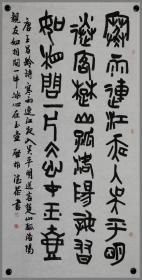 寒雨連江夜入吴平明
送客楚山孤洛陽親友
如相問一片冰心在玉壺
唐王昌齡詩寒雨連江夜入吴平明送客楚山孤洛陽
親友如相問一片冰心在玉壺 書